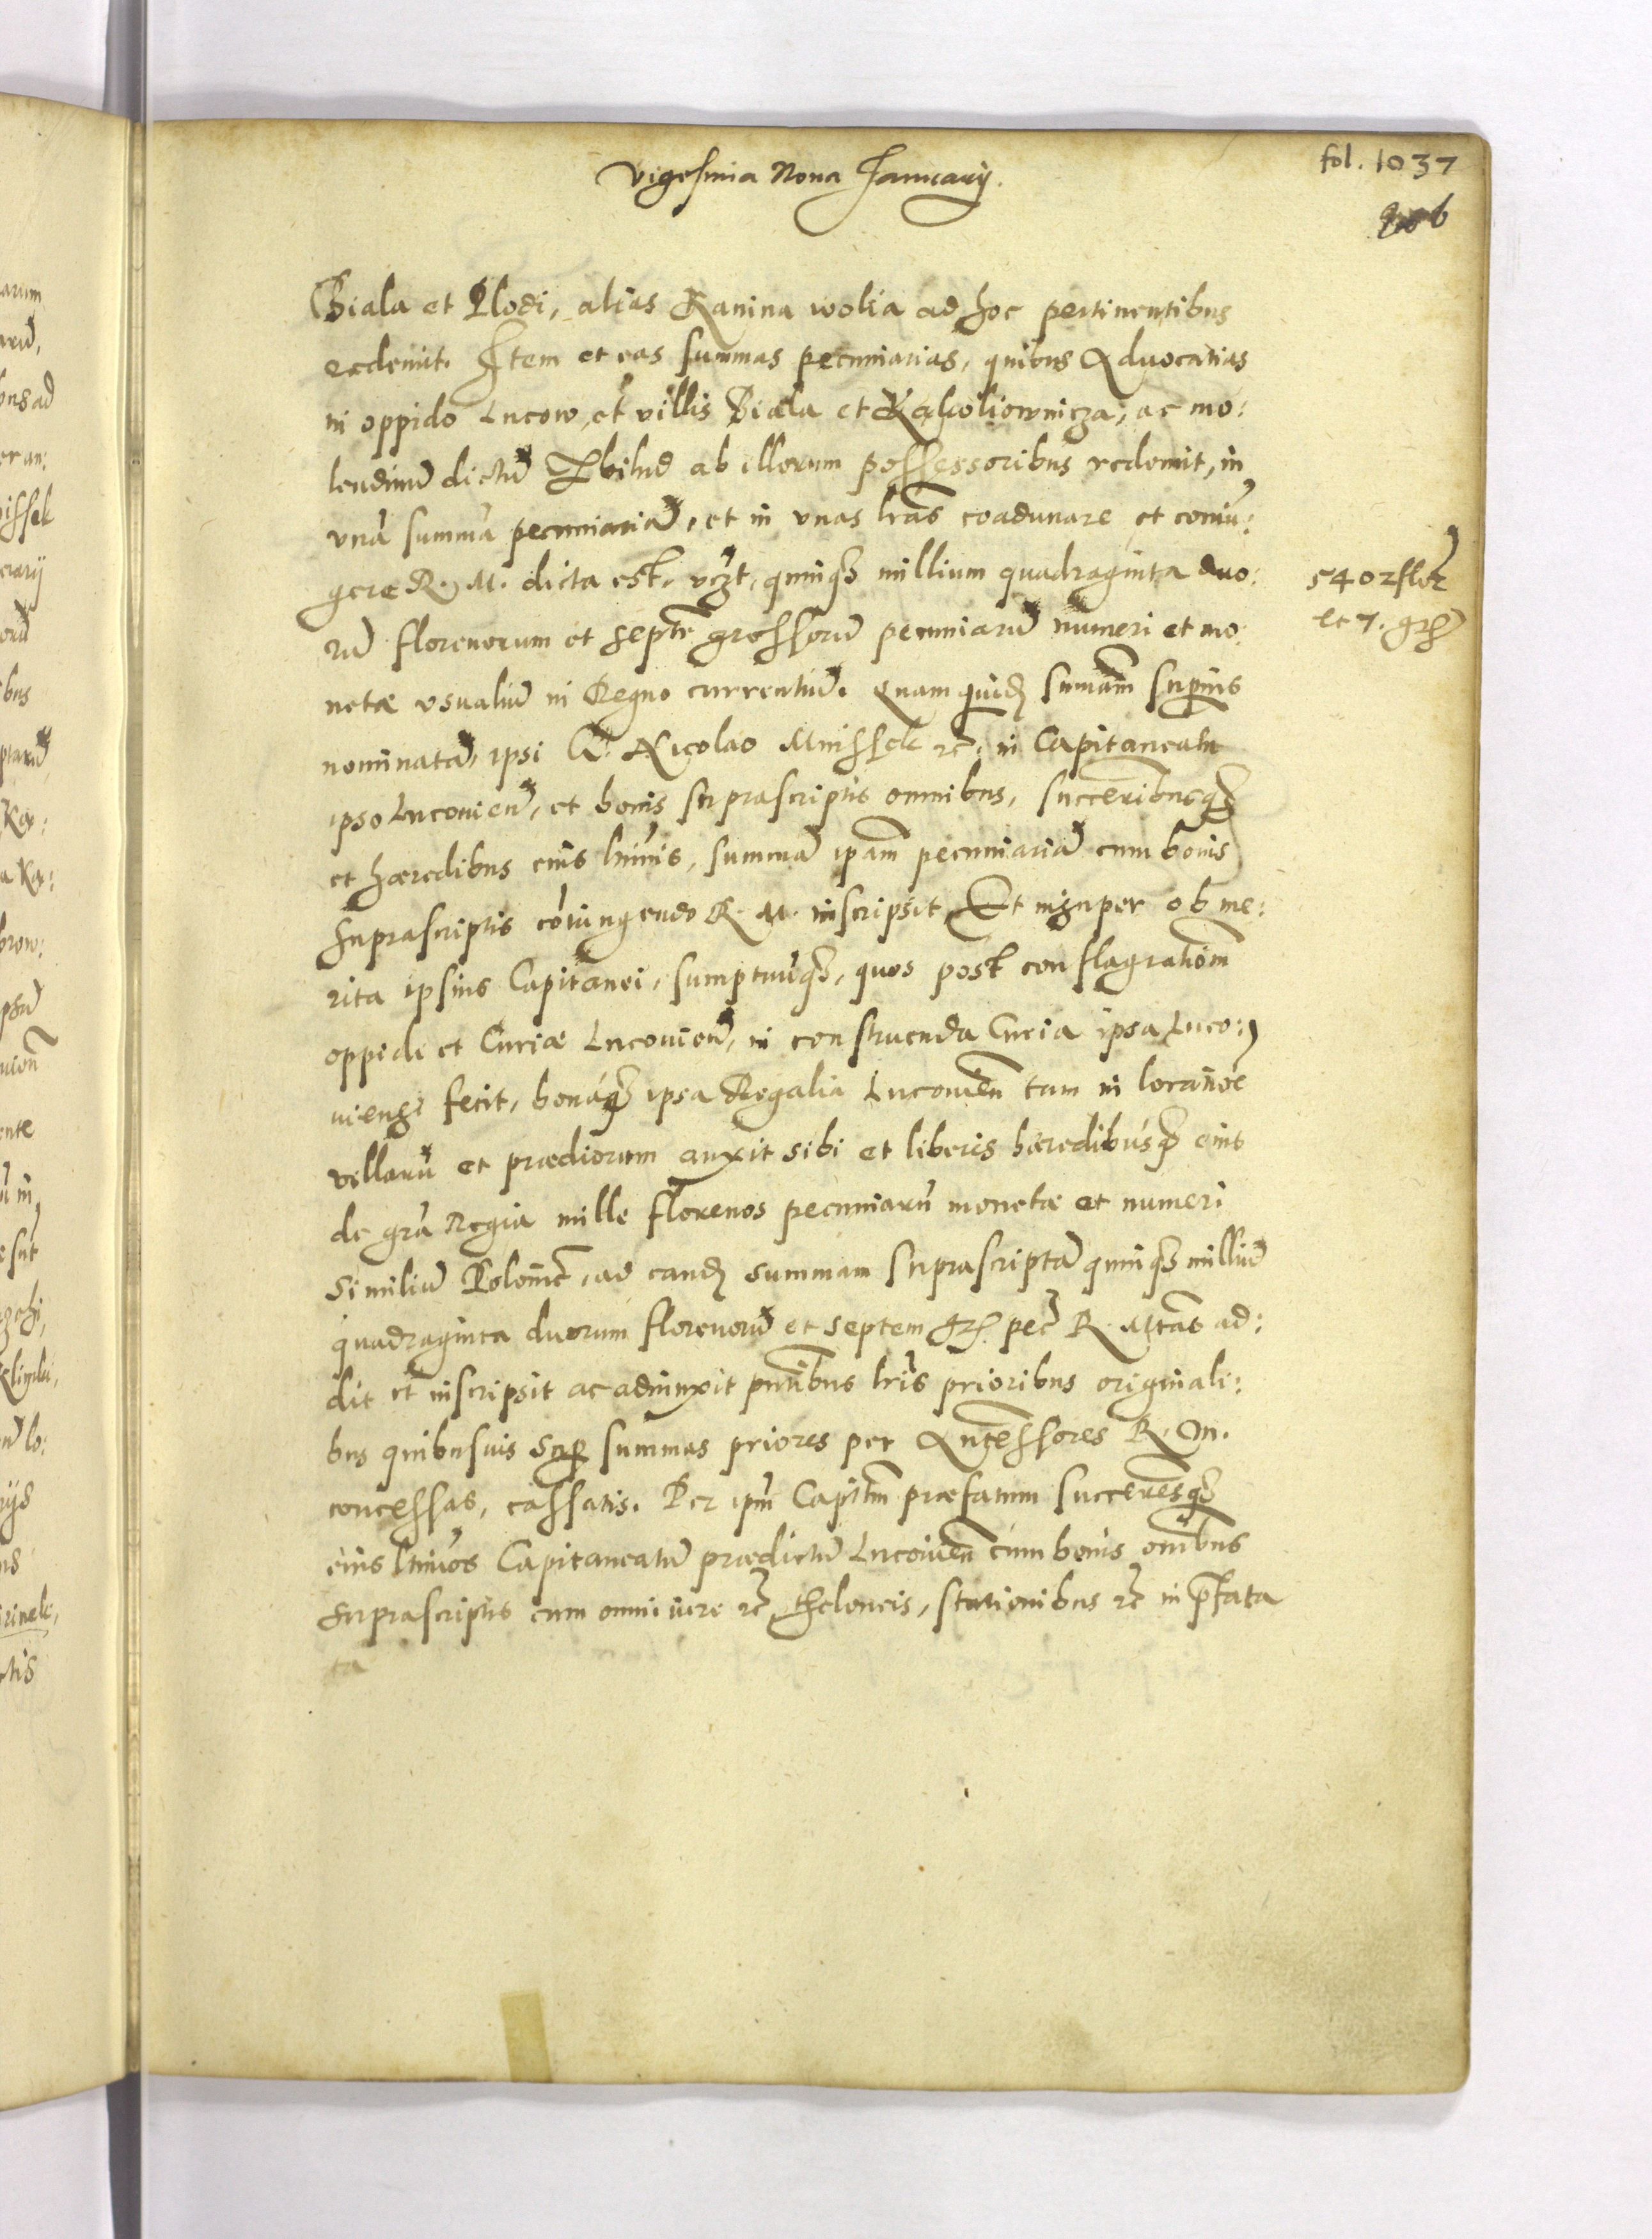 Vigesima Nona Januarij.
fol. 1037
6
Biala et Plodi, alias Kanina wolia ad hoc pertinentibus
redemit. Item et eas summas pecuniarias, quibus Aduocatias
in oppido Lucow, et villis Biala et Kakoliownicza, ac mo:
lendinũ dictũ ab illorum possessoribus redemit, in
vnã summã pecuniariã, et in vnas lras coadunare et coniũ:
gere R. M. dicta est. vczt, quinqȝ millium quadraginta duo:
rũ florenorum et septẽ grossorũ pecuniarũ numeri et mo:
netæ vsualiũ in Regno currentiũ. Quam quidẽ sumam superius
nominatã, ipsi G. Nicolao Mnissek etc, in Capitaneatu
ipso Lucouien, et bonis suprascriptis omnibus, successoribusqȝ
et hæredibus eius ltimis, summã ipam pecuniariã cum bonis
suprascriptis cõiungendo R. M. inscripsit. Et insuper ob me:
rita ipsius Capitanei, sumptuũqȝ, quos post conflagrationem
oppidi et Curiæ Lucouien, in construenda Curia ipsa Luco:
uiensi fecit, bonáqȝ ipsa Regalia Lucouien tam in locatioe
villarũ et prædiorum auxit sibi et liberis hæredibúsqȝ eius
de gra Regia mille florenos pecuniarũ monetæ et numeri
similiũ Polonicæ, ad eandẽ summam suprascriptã quinqȝ milliũ
quadraginta duorum florenorũ et septem grs. pec R. Mtas ad:
dit et inscripsit ac adiunxit pntibus lris prioribus originali:
bus quibusuis sup summas priores per Antecessores R. M.
concessas, cassatis. Per ipm Capitm præfatum successoresqȝ
eius ltimos Capitaneatũ prædictũ Lucouien cum bonis omibus
suprascriptis cum omni iure etc, theloneis, stationibus etc in pfata
ta
5402 flor
et 7. grs